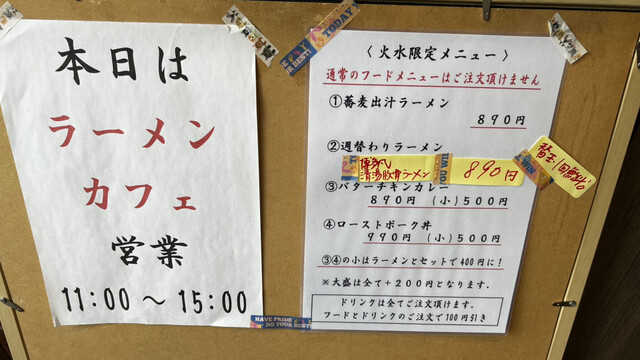 本日は
ラーメン
カフェ
営業
11:00～15:00
TODAY!
〈火水限定メニュー〉
通常のフードメニューはご注文頂けません
①蕎麦出汁ラーメン
890円
②週替わりラーメン
清湯豚骨ラーメン
890円
替玉1回無料
③バターチキンカレー
890円 (小)500円
④ローストポーク丼
990円 (小)500円
③④の小はラーメンとセットで400円に!
※大盛は全て+200円となります。
ドリンクは全てご注文頂けます。
フードとドリンクのご注文で100円引き
HAVE PRIDE
DO YOUR BEST!